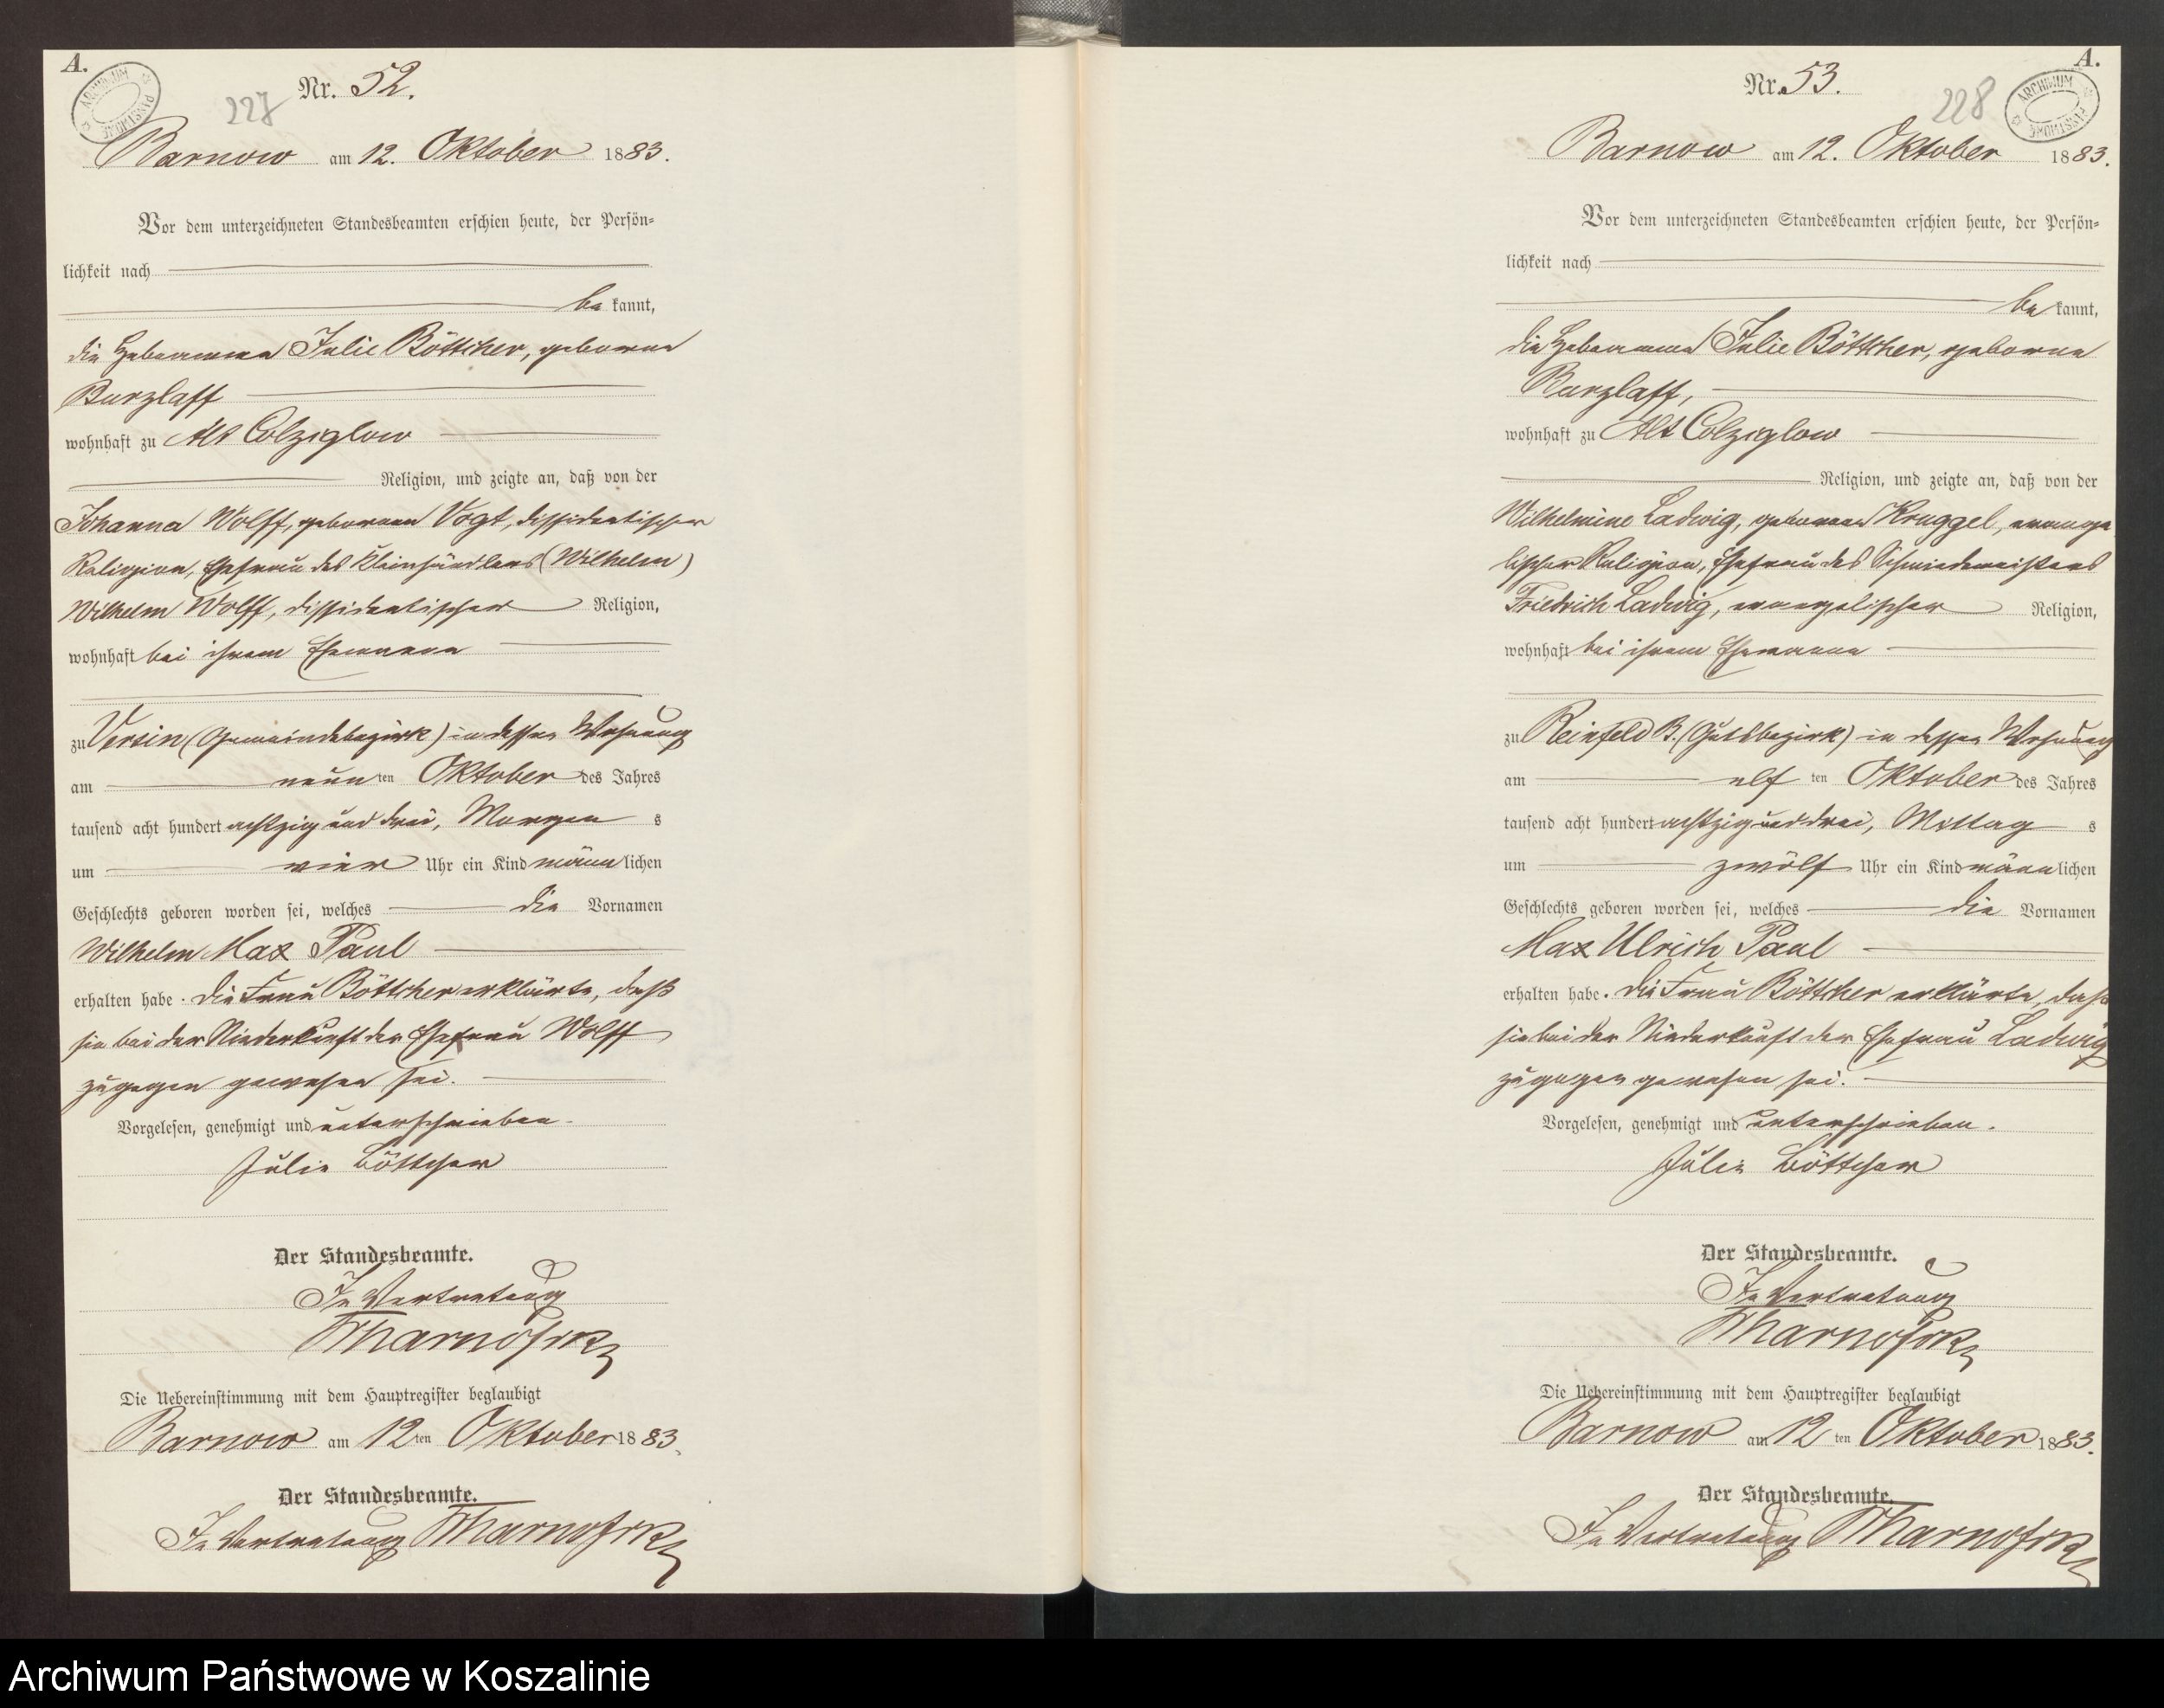 A.
ARCHIWUM PAŃSTWOWE
Nr. 52.
227
Barnow am 12. Oktober 1883.
Vor dem unterzeichneten Standesbeamten erschien heute, der Persön-
lichkeit nach
be kannt,
die Hebamme Julie Böttcher, geborne
Burzlaff
wohnhaft zu Alt Colziglow
Religion, und zeigte an, daß von der
Johanna Wolff, gebornen Vogt, dissidentischer
Religion, Ehefrau des Kleinhändlers (Wilhelm)
Wilhelm Wolff, dissidentischer Religion,
wohnhaft bei ihrem Ehemann
zu Versin (Gemeindebezirk) in dessen Wohnung
am neun ten Oktober des Jahres
tausend acht hundert achtzig und drei, Morgen s
um vier Uhr ein Kind männ lichen
Geschlechts geboren worden sei, welches die Vornamen
Wilhelm Max Paul
erhalten habe. Die Frau Böttcher erklärte, daß
sie bei der Niederkunft der Ehefrau Wolff
zugegen gewesen sei.
Vorgelesen, genehmigt und unterschrieben.
Julie Böttcher
Der Standesbeamte.
In Vertretung
Die Uebereinstimmung mit dem Hauptregister beglaubigt
Barnow am 12 ten Oktober 1883.
Der Standesbeamte.
In Vertretung
A.
ARCHIWUM PAŃSTWOWE
Nr. 53.
228
Barnow am 12. Oktober 1883.
Vor dem unterzeichneten Standesbeamten erschien heute, der Persön-
lichkeit nach
be kannt,
die Hebamme Julie Böttcher, geborne
Burzlaff,
wohnhaft zu Alt Colziglow
Religion, und zeigte an, daß von der
Wilhelmine Ladwig, gebornen Kruggel, evange
lischer Religion, Ehefrau des Schmiedemeisters
Friedrich Ladwig, evangelischer Religion,
wohnhaft bei ihrem Ehemanne
zu Reinfeld B. (Gutsbezirk) in dessen Wohnung
am elf ten Oktober des Jahres
tausend acht hundert achtzig und drei, Mittag s
um zwölf Uhr ein Kind männ lichen
Geschlechts geboren worden sei, welches die Vornamen
Max Ulrich Paul
erhalten habe. Die Frau Böttcher erklärte, daß
sie bei der Niederkunft der Ehefrau Ladwig
zugegen gewesen sei.
Vorgelesen, genehmigt und unterschrieben.
Julie Böttcher
Der Standesbeamte.
In Vertretung
Die Uebereinstimmung mit dem Hauptregister beglaubigt
Barnow am 12 ten Oktober 1883.
Der Standesbeamte.
In Vertretung
Archiwum Państwowe w Koszalinie